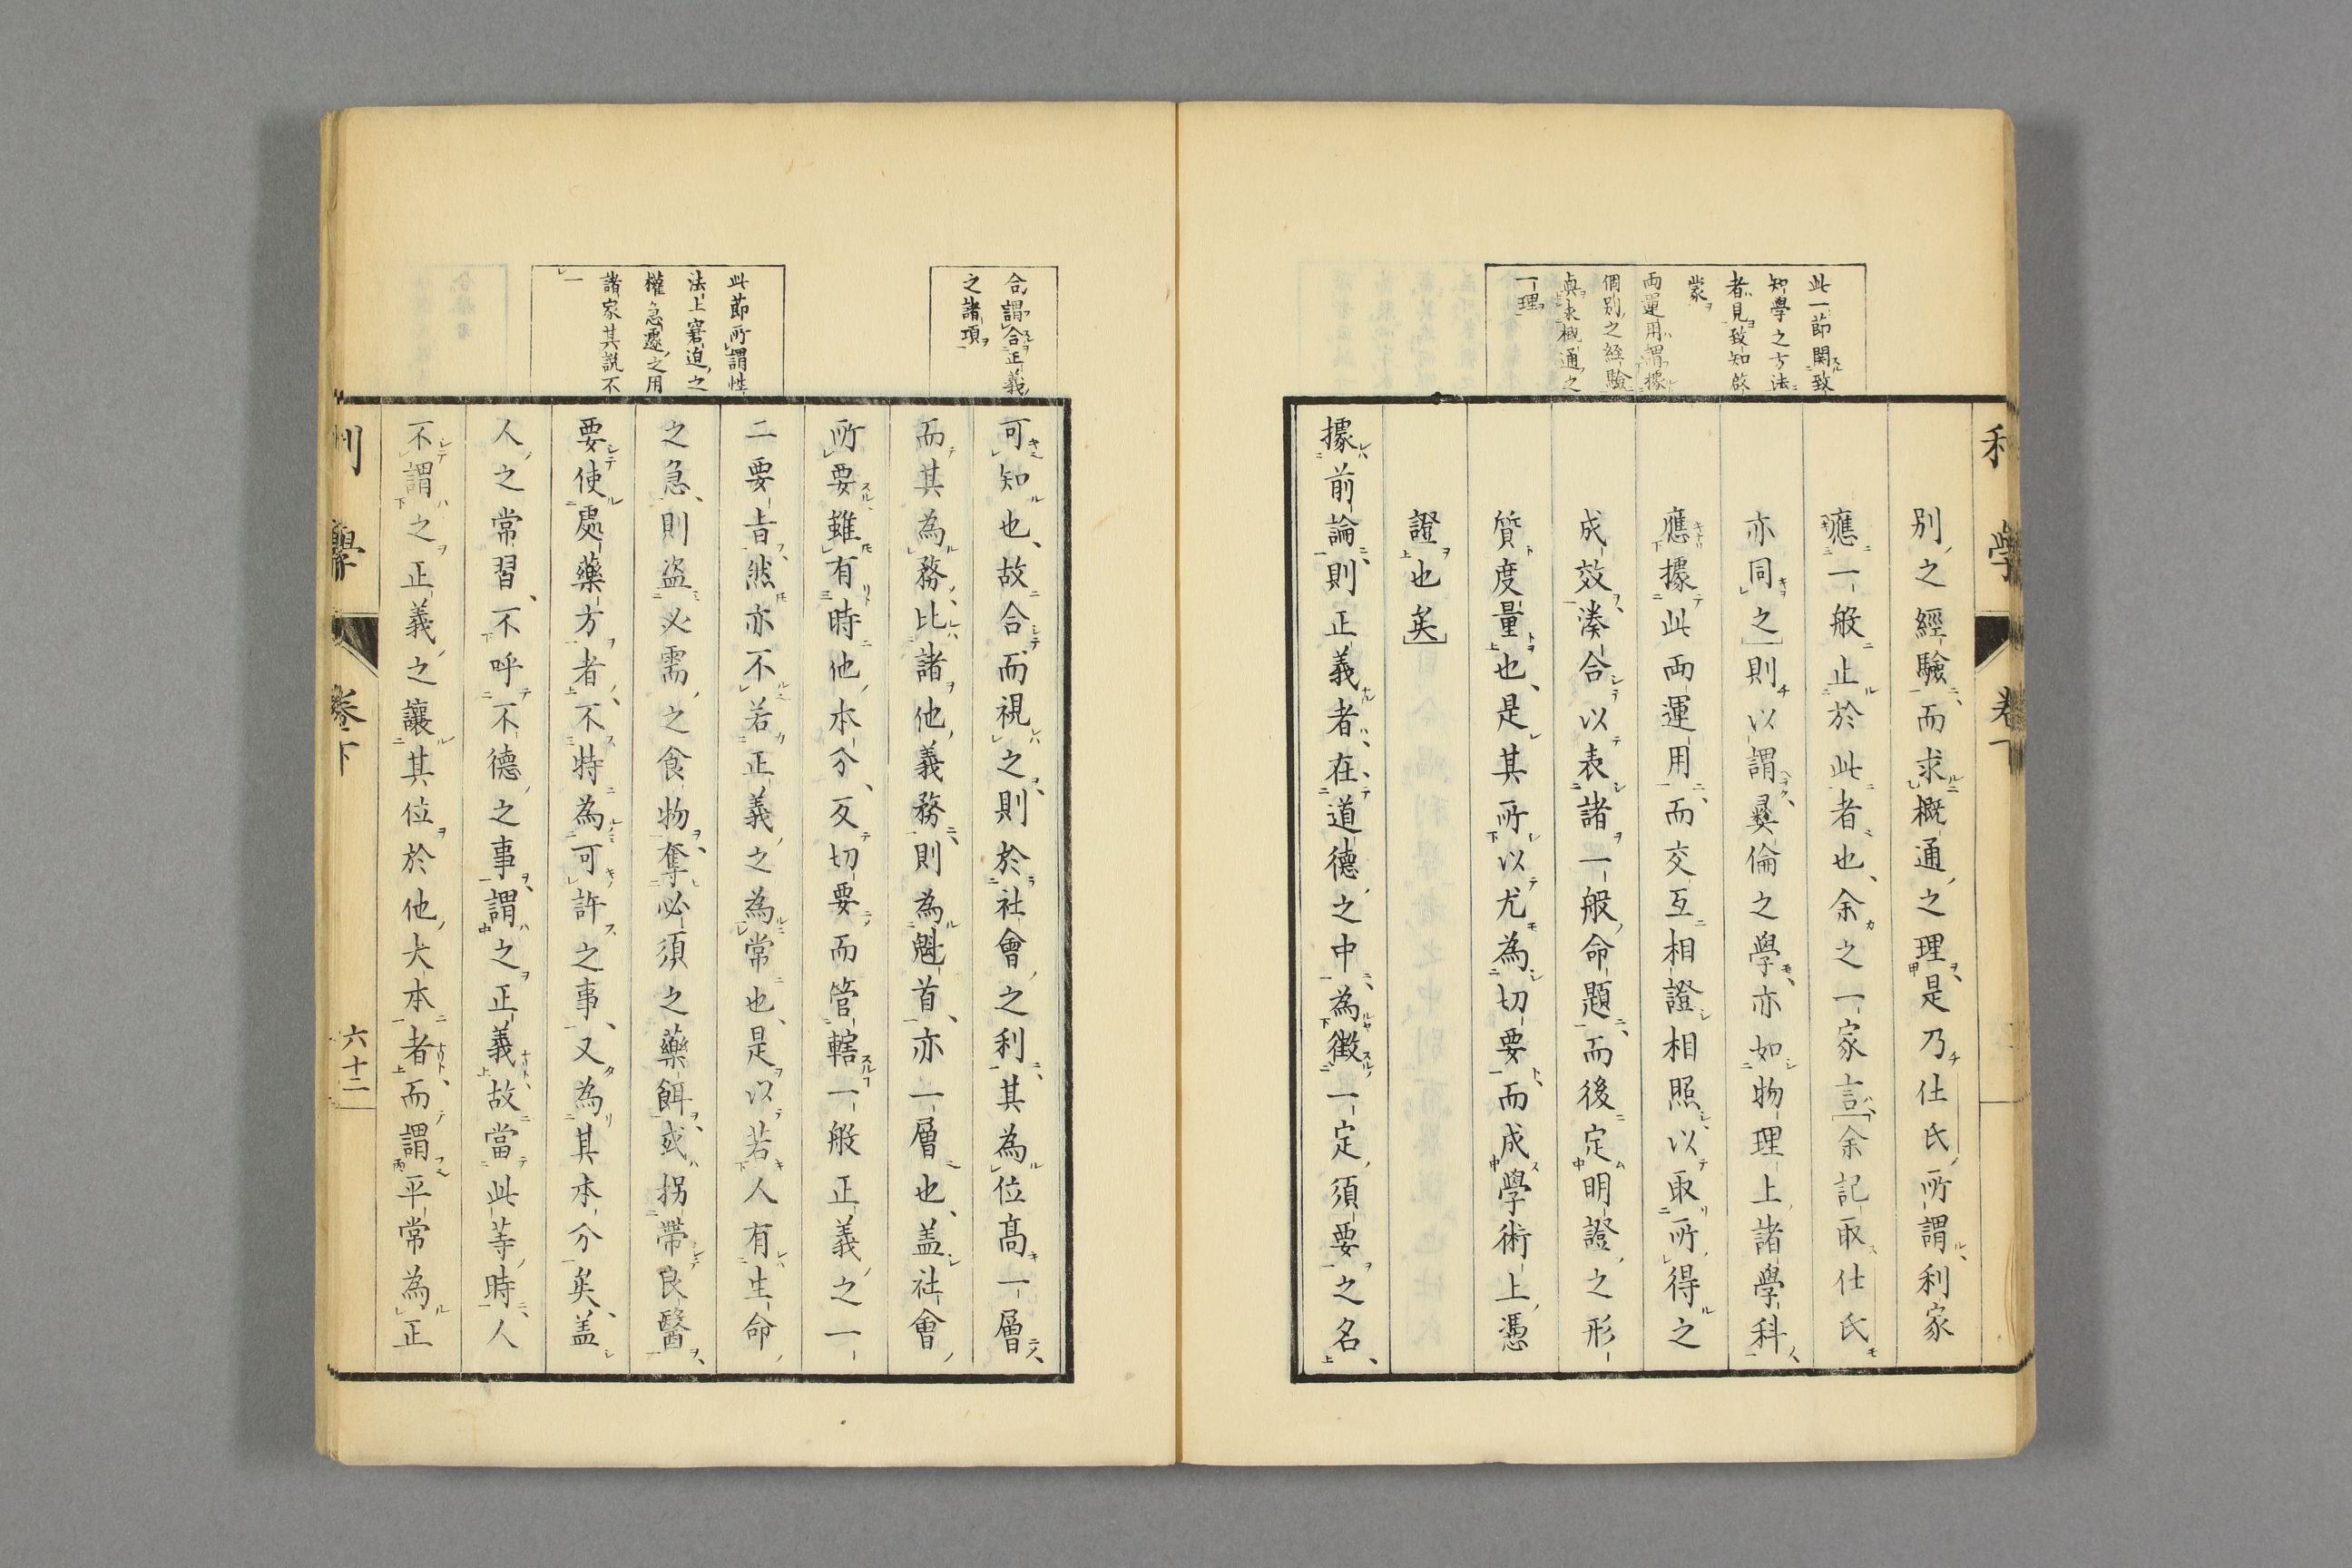 利學 卷下
此一節関致
知學之方法
者見致知啟
蒙
両運用謂據
個別之経驗
與求概通之
一理
別之經驗而求概通之理是乃仕氏所謂利家
應一般止於此者也余之一家言余記取仕氏
亦同之則以謂彜倫之學亦如物理上諸學科
應據此両運用而交互相證相照以取所得之
成效湊合以表諸一般命題而後定明證之形
質度量也是其所以尤為切要而成學術上憑
證也矣
據前論則正義者在道德之中為徴一定須要之名
合謂合正義
之諸項
可知也故合而視之則於社會之利其為位高一層
而其為務比諸他義務則為魁首亦一層也盖社會
所要雖有時他本分反切要而管轄一般正義之一
二要旨然亦不若正義之為常也是以若人有生命
之急則盗必需之食物奪必須之藥餌或拐帶良醫
要使處藥方者不特為可許之事又為其本分矣盖
人之常習不呼不德之事謂之正義故當此等時人
不謂之正義之讓其位於他大本者而謂平常為正
此節所謂性
法上窘迫之
權急遽之用
諸家其説不
一
利學 卷下 六十二